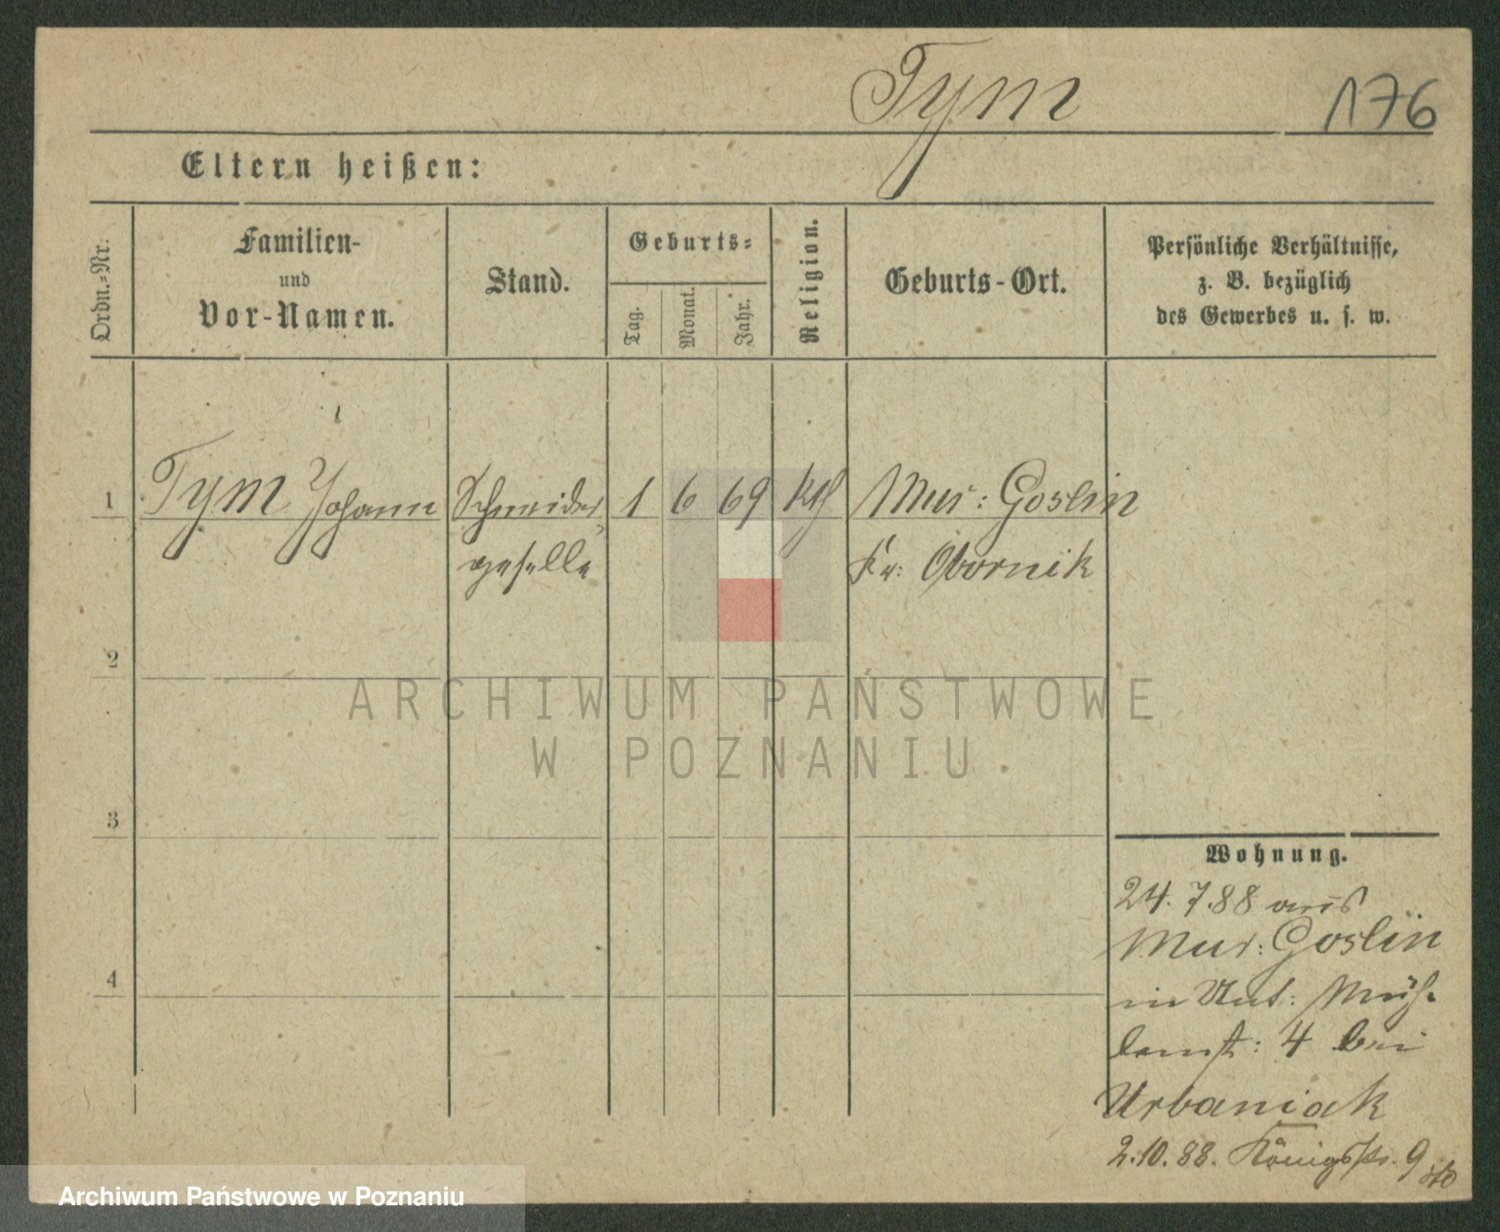 Tym 176
Eltern heißen:
Ordn.-Nr.
Familien-
und
Vor-Namen.
Stand.
Geburts-
Tag.
Monat.
Jahr.
Religion.
Geburts-Ort.
Persönliche Verhältnisse,
z. B. bezüglich
des Gewerbes u. s. w.
1 Tym Johann Schneider 1 6 69 kth Mur: Goslin
geselle Kr: Obornik
2
3
4
ARCHIWUM PAŃSTWOWE
W POZNANIU
Wohnung.
24.7.88 aus
Mur: Goslin
in Unt: Müh-
lenst: 4 bei
Urbaniak
2.10.88. Königsstr. 9
Archiwum Państwowe w Poznaniu